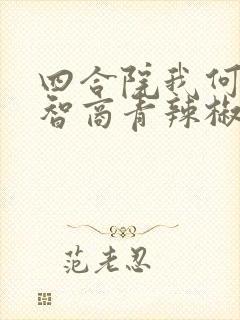 四合院我何
智商青辣椒
范老忍